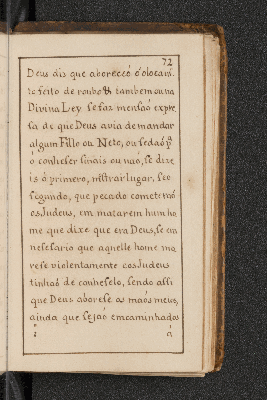 72
Deus dis que aboreceó ó oloCaus
to feito de roubo & tambem ou na
Divina Ley se faz mensaó expre
sa de que Deus avia de mandar
algum Fillo ou Neto, ou sedaó pª
ó conheser sinais ou não, se dize
is ó primero, mostrai lugar, seo
segundo, que pecado cometeraó
os Judeus, em matarem hum ho
me que dixe que era Deus, se em
nesesario que aquelle home mo
rese violentamente e os Judeus
tinhaó de conheselo, sendo assi
que Deus aborese as maós meus,
ainda que sejaó emcaminhados
á